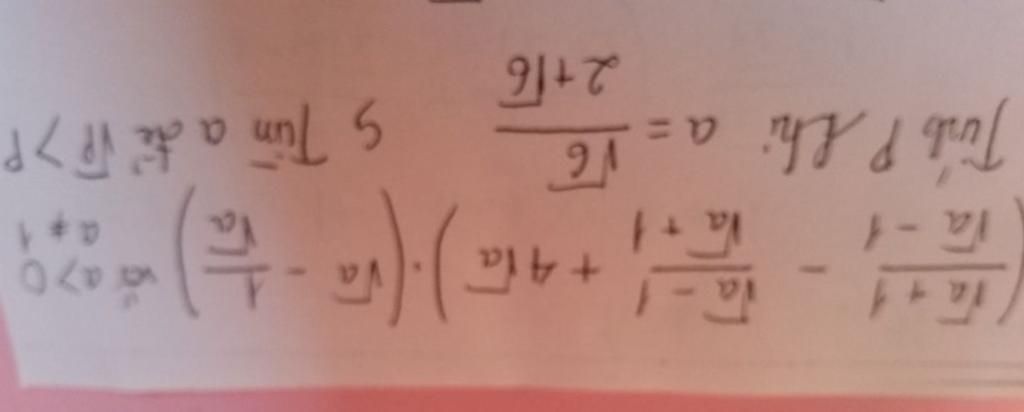 ( \frac{√a + 1}{√a - 1} - \frac{√a - 1}{√a + 1} + 4√a ) . ( √a - \frac{1}{√a} ) với a > 0 a ≠ 1
Tính P khi a = \frac{√6}{2+√6} 5 Tìm a để √P > P